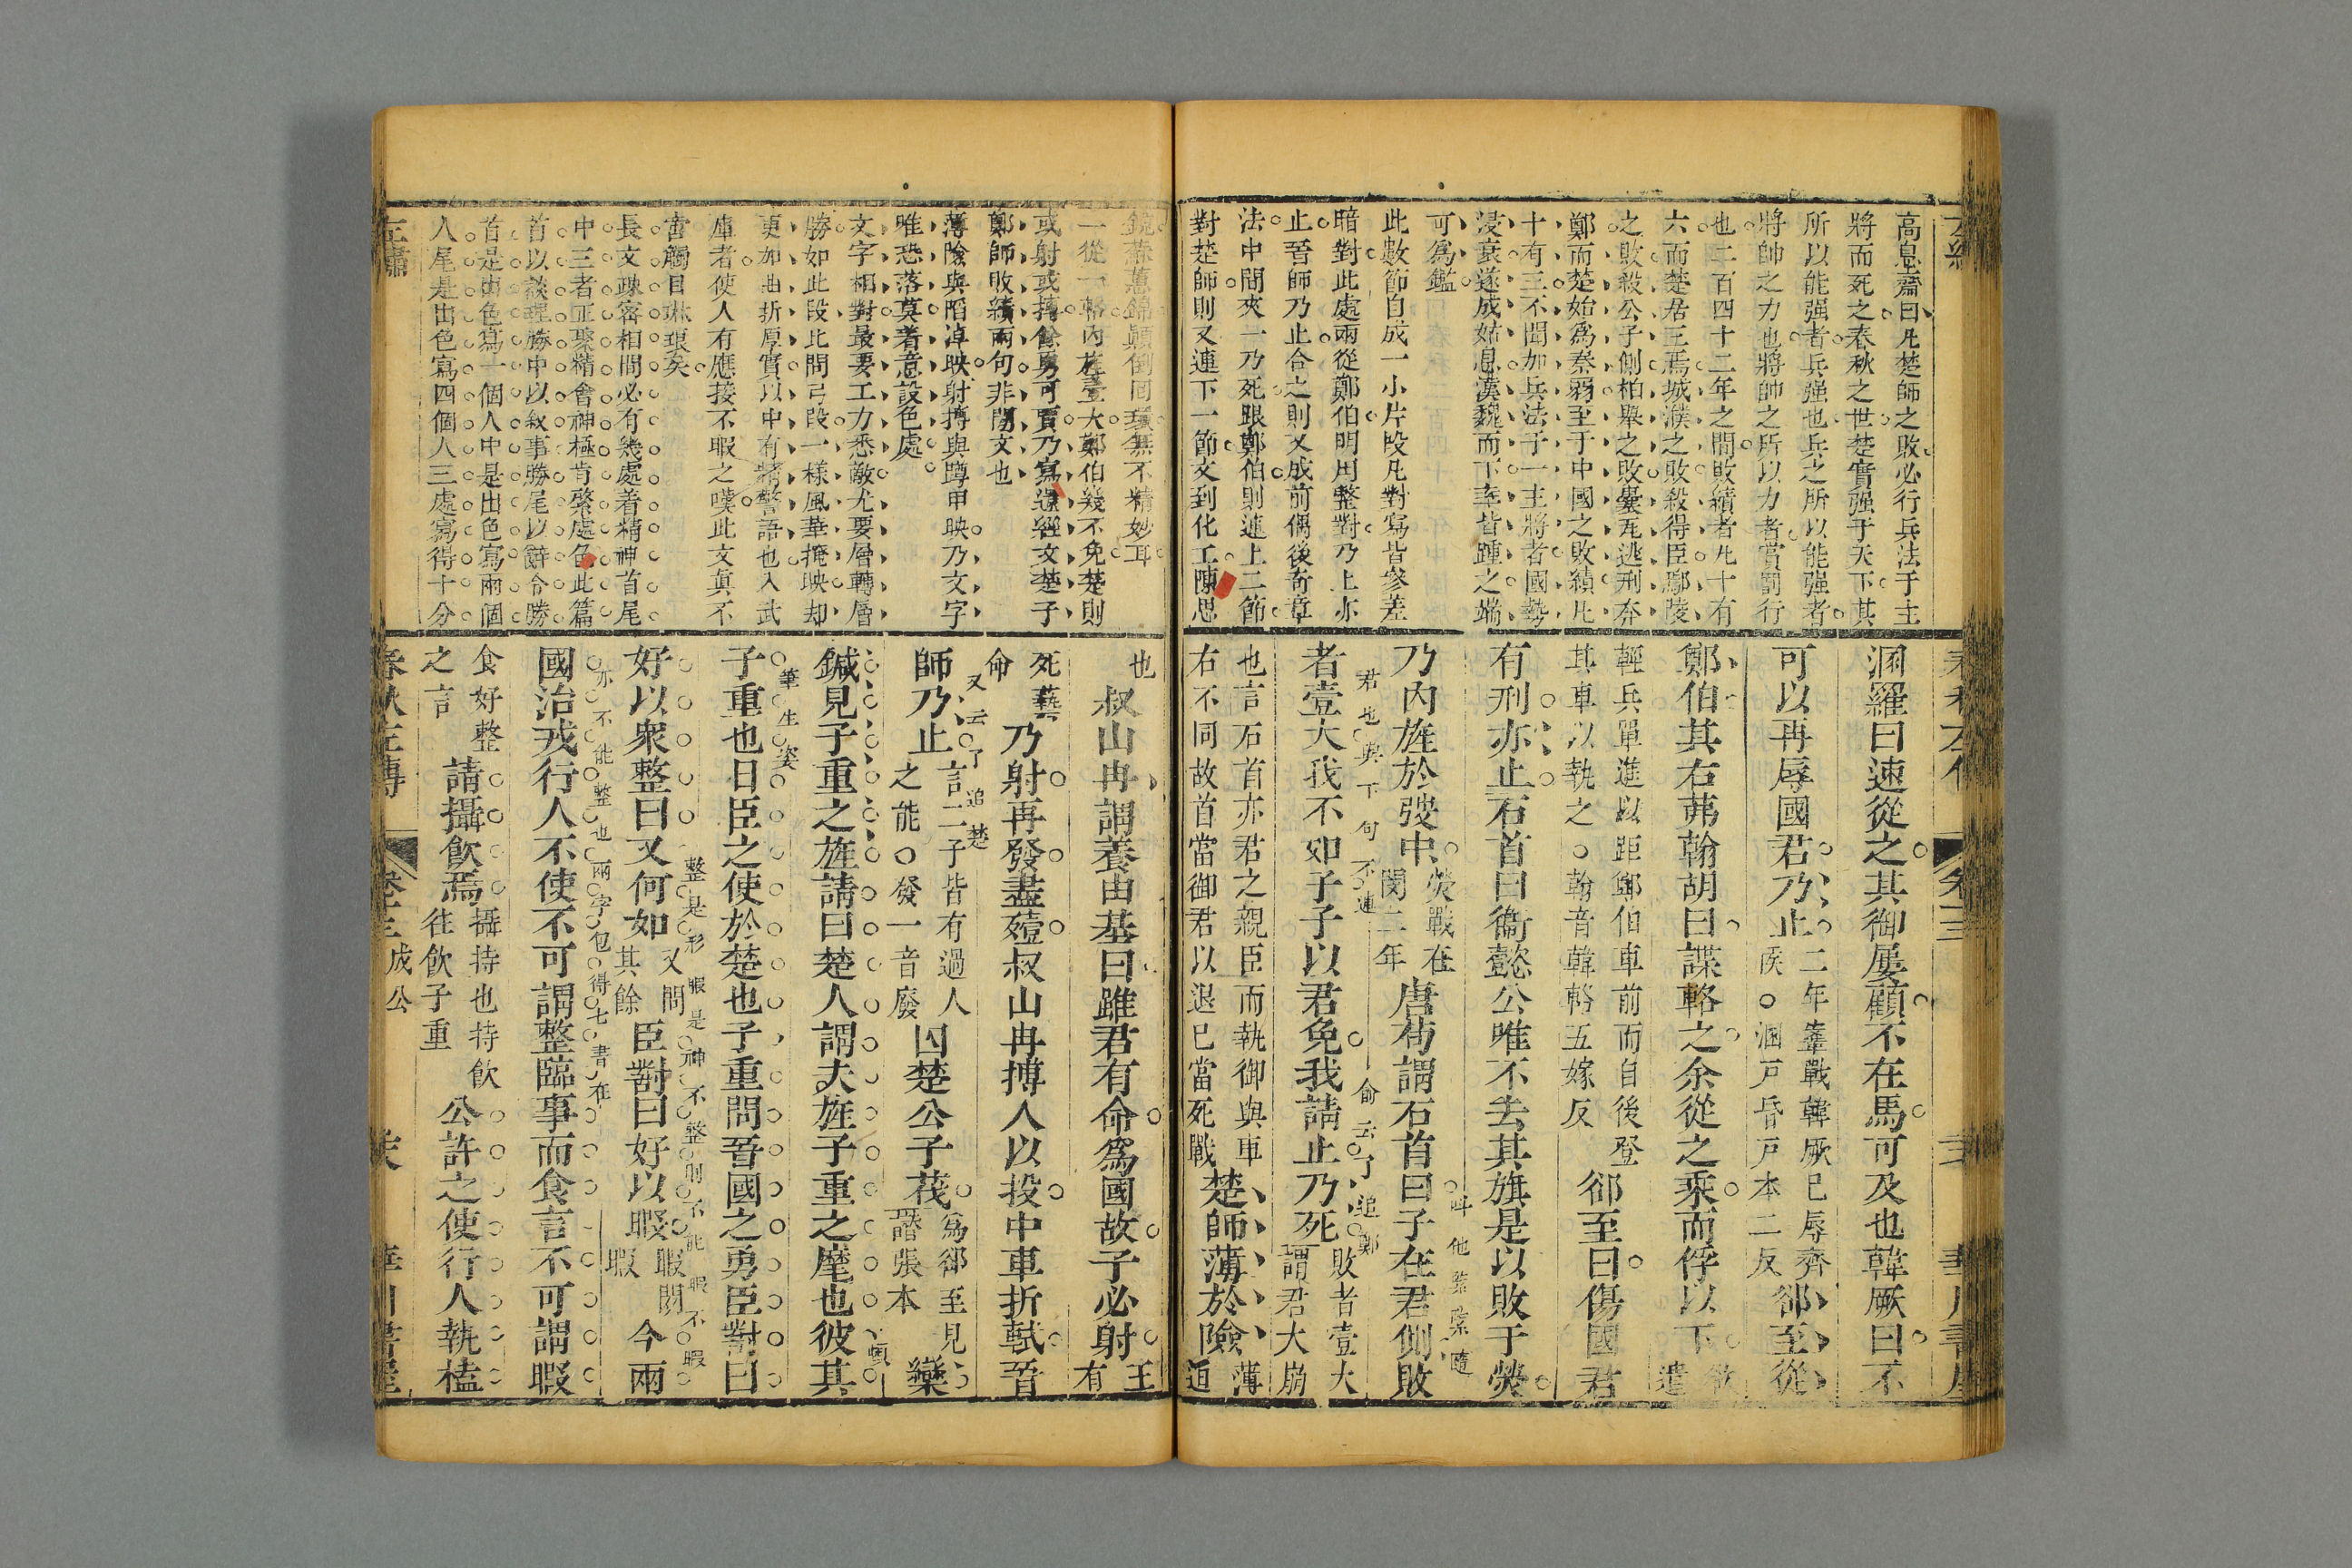 高息齋曰凡楚師之敗必行兵法于主
將而死之春秋之世楚實强于天下其
所以能强者兵强也兵之所以能强者
將帥之力也將帥之所以力者賞罰行
也二百四十二年之間敗績者凡十有
六而楚居三焉城濮之敗殺得臣鄢陵
之敗殺公子側柏舉之敗囊瓦逃刑奔
鄭而楚始爲秦弱至于中國之敗績凡
十有三不聞加兵法于一主將者國勢
浸衰遂成姑息漢魏而下率皆踵之端
可爲鑑
此數節自成一小片段凡對寫皆參差
暗對此處兩從鄭伯明用整對乃上亦
止晉師乃止合之則又成前偶後奇章
法中間夾一乃死跟鄭伯則連上二節
對楚師則又連下一節文到化工陳思
溷羅曰速從之其御屢顧不在馬可及也韓厥曰不
可以再辱國君乃止二年鞌戰韓厥已辱齊
侯○溷戸昏戸本二反郤至從
鄭伯其右茀翰胡曰諜輅之余從之乘而俘以下欲
遣
輕兵單進以距鄭伯車前而自後登
其車以執之○翰音韓輅五嫁反郤至曰傷國君
有刑亦止石首曰衞懿公唯不去其旗是以敗于熒
乃內旌於弢中熒戰在
閔二年唐苟謂石首曰子在君側敗
叫他緊緊隨
者壹大我不如子子以君免我請止乃死敗者壹大
謂君大崩
君也與下句不連
俞云了追鄭
也言石首亦君之親臣而執御與車
右不同故首當御君以退已當死戰楚師薄於險薄
迫
鏡蘇蕙錦顛倒回環無不精妙耳
一從一輅內旌壹大鄭伯幾不免楚則
或射或搏餘勇可賈乃寫過經文楚子
鄭師敗績兩句非閒文也
薄險與陷淖映射搏與蹲甲映乃文字
唯恐落莫着意設色處
文字相對最要工力悉敵尤要層轉層
勝如此段比問弓段一樣風華掩映却
更加曲折厚實以中有精警語也入武
庫者使人有應接不暇之嘆此文眞不
啻觸目琳琅矣
長文疎密相間必有幾處着精神首尾
中三者正聚精會神極肯綮處也此篇
首以談理勝中以敘事勝尾以辭令勝
首是出色寫一個人中是出色寫兩個
人尾是出色寫四個人三處寫得十分
也叔山冉謂養由基曰雖君有命爲國故子必射王
有
死藝
命乃射再發盡殪叔山冉搏人以投中車折軾晉
師乃止言二子皆有過人
之能○發一音廢囚楚公子茷爲郤至見
譖張本欒
又云了追楚
鍼見子重之旌請曰楚人謂夫旌子重之麾也彼其
子重也日臣之使於楚也子重問晉國之勇臣對曰
筆生姿
好以衆整曰又何如又問
其餘臣對曰好以暇暇閒
暇今兩
整是形暇是神不整則不能暇不暇
國治戎行人不使不可謂整臨事而食言不可謂暇
亦不能整也兩字包得七書在
食好整
之言請攝飮焉攝持也持飮
往飮子重公許之使行人執榼
左繡
春秋左傳
卷十三成公
華川書屋